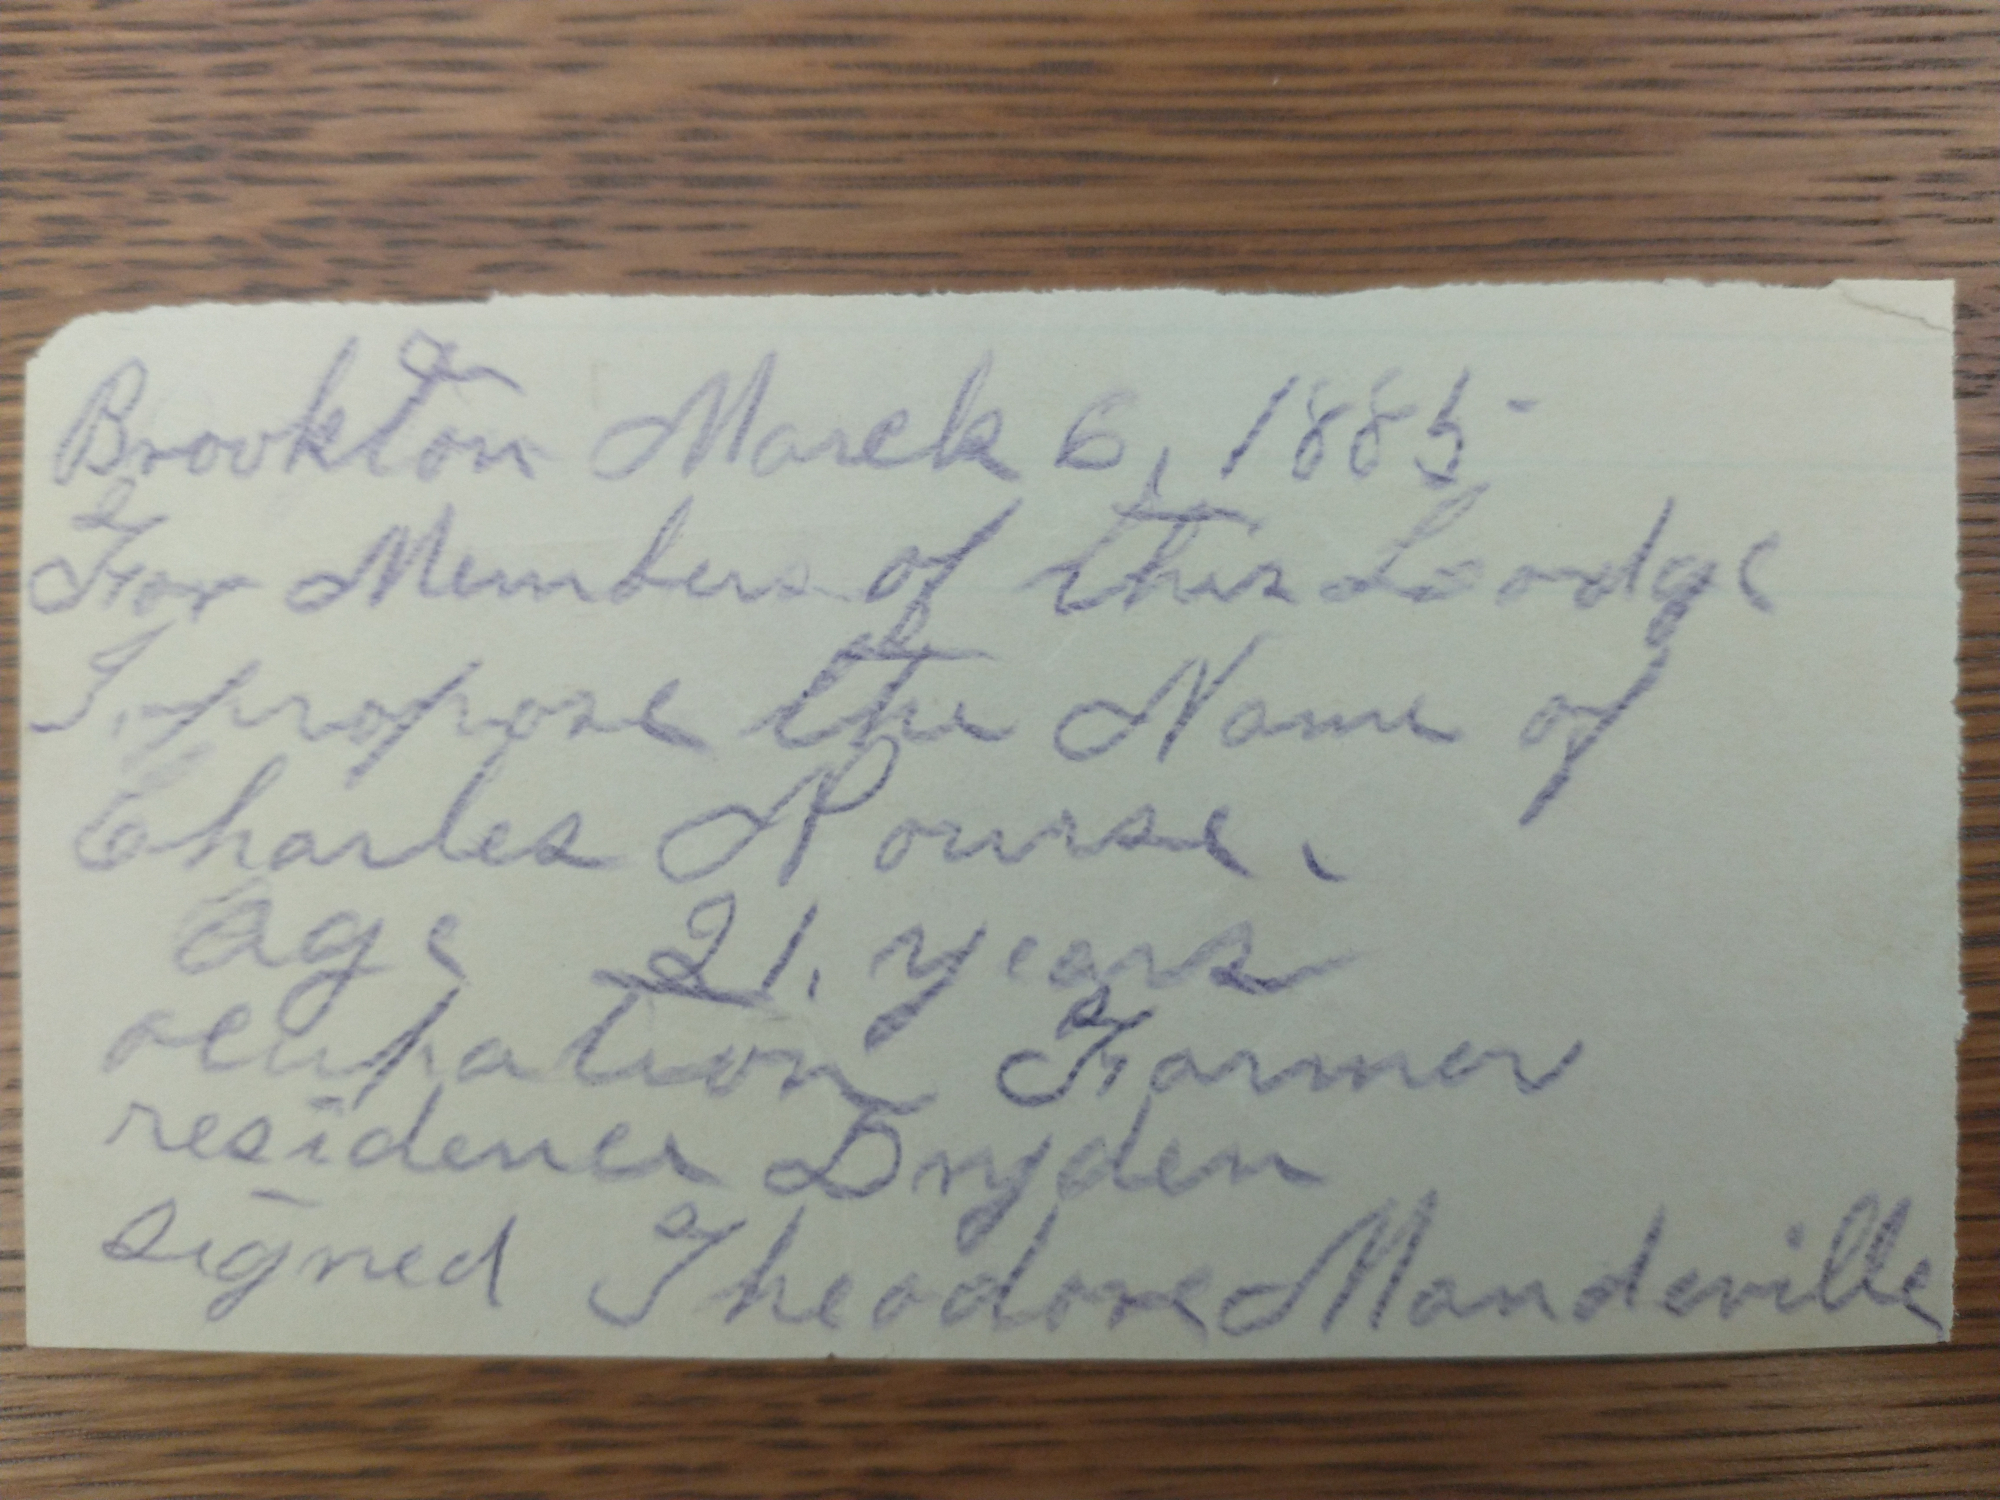 Brookton March 6, 1885-
For Members of this Loodge
I, propose the Name of
Charles Nourse.
age 21. years
ocupation Farmer
residence Dryden
signed Theodore Mandeville